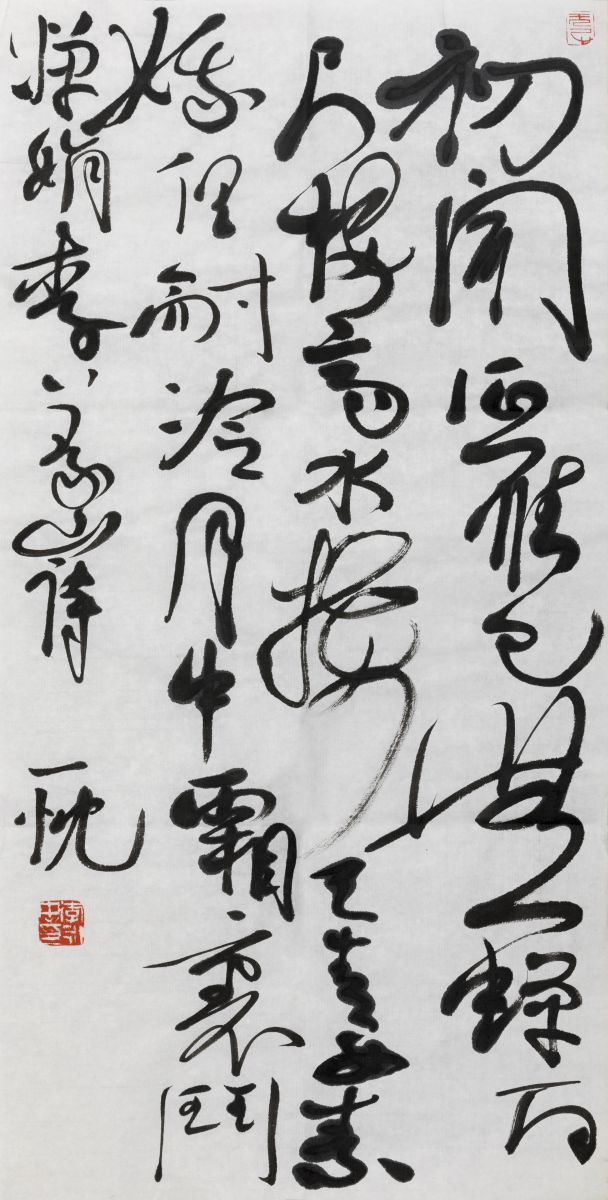 初聞征雁已無蟬百
尺樓高水接天青女素
娥俱耐冷月中霜裏鬥
嬋娟李義山詩 一忱